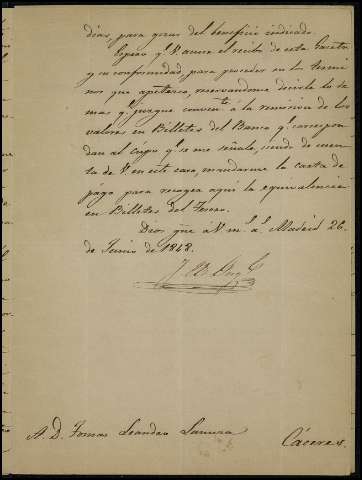 dias, para gozar del beneficio indicado.
Espero q.e V. acuse el recibo de esta Gaceta
y su conformidad, para proceder en los termi
nos que apetezco, reservandome decirle lo de
mas q.e juzgue convente. á la remision de los
valores en Billetes del Banco q.e correspon
dan al cupo q.e se me señale, siendo de cuen
ta de V. en este caso mandarme la carta de
pago para recoger aqui la equivalencia
en Billetes del Tesoro.
Dios gue á V. m.s a.s Madrid 26
de Junio de 1848.
A. D. Tomas Leandro
Cáceres.